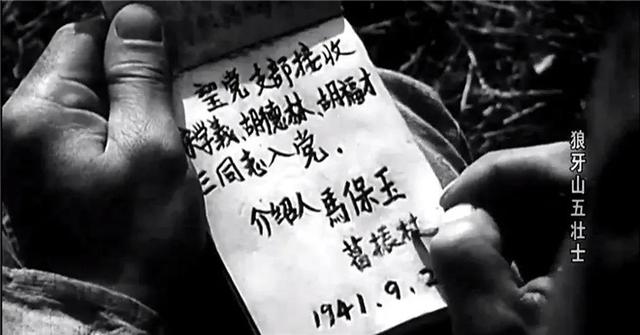 望党支部接收
学義、胡德林、胡福才
三同志入党.
介绍人 馬保玉
葛振林
1941.9.2
狼牙山五壮士